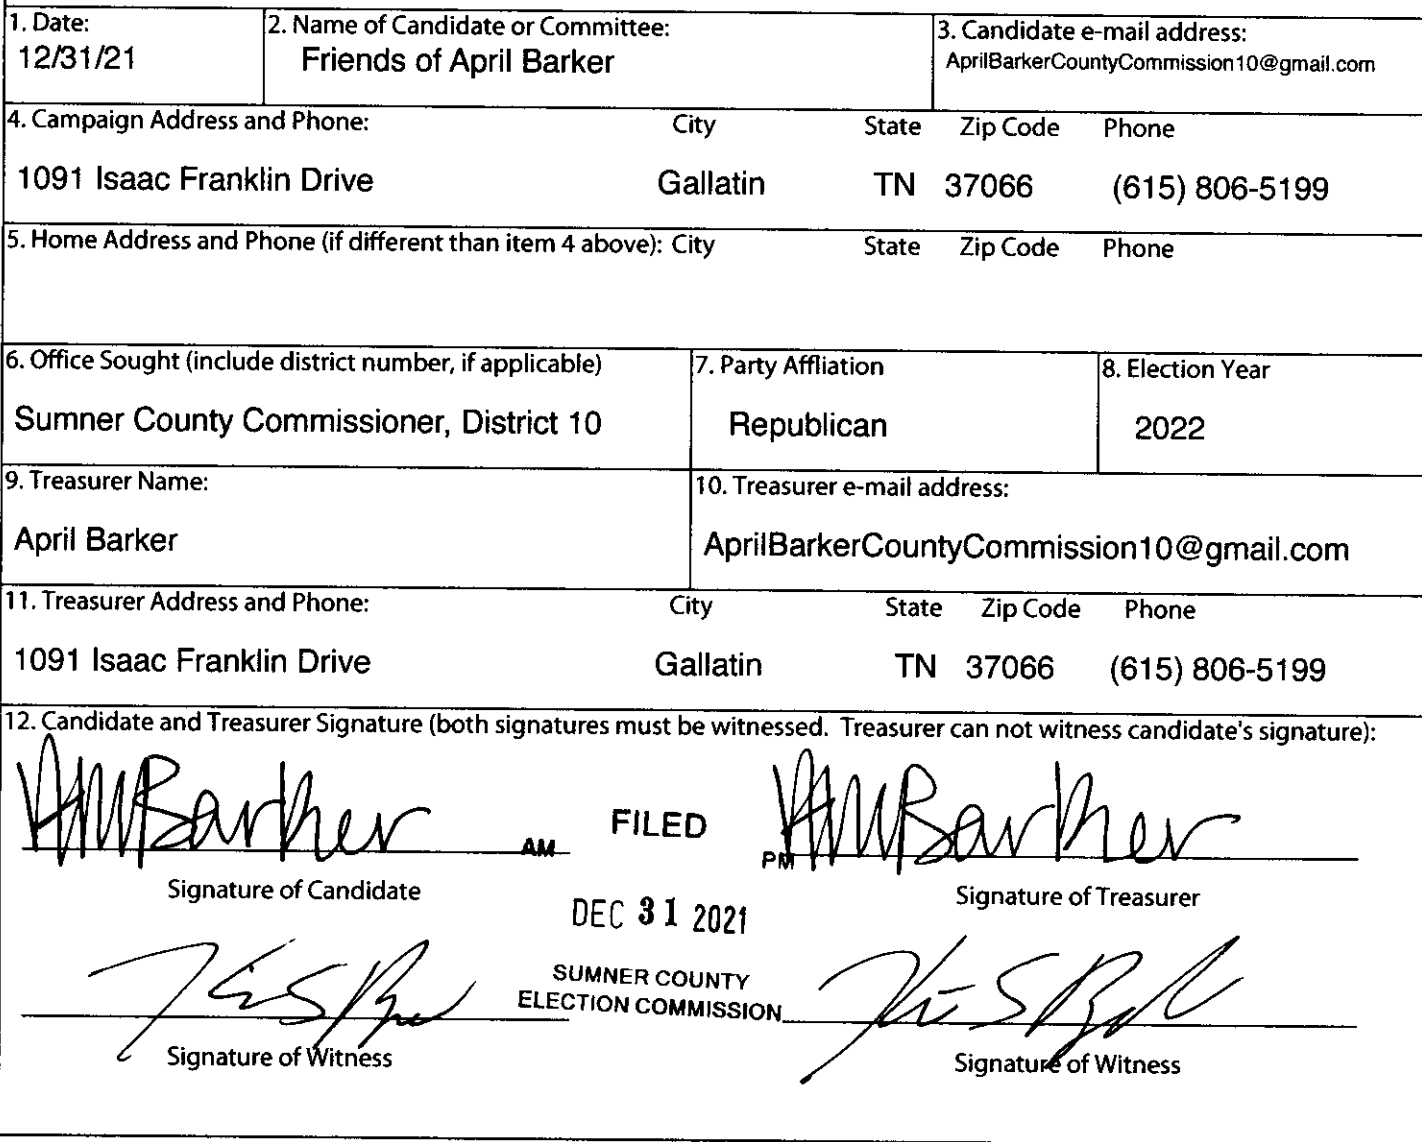 1. Date:
12/31/21
2. Name of Candidate or Committee:
Friends of April Barker
3. Candidate e-mail address:
AprilBarkerCountyCommission10@gmail.com
4. Campaign Address and Phone: City State Zip Code Phone
1091 Isaac Franklin Drive Gallatin TN 37066 (615) 806-5199
5. Home Address and Phone (if different than item 4 above): City State Zip Code Phone
6. Office Sought (include district number, if applicable)
Sumner County Commissioner, District 10
7. Party Affliation
Republican
8. Election Year
2022
9. Treasurer Name:
April Barker
10. Treasurer e-mail address:
AprilBarkerCountyCommission10@gmail.com
11. Treasurer Address and Phone: City State Zip Code Phone
1091 Isaac Franklin Drive Gallatin TN 37066 (615) 806-5199
12. Candidate and Treasurer Signature (both signatures must be witnessed. Treasurer can not witness candidate's signature):
AMBarker AM FILED PM AMBarker
Signature of Candidate Signature of Treasurer
DEC 31 2021
SUMNER COUNTY
ELECTION COMMISSION
Signature of Witness Signature of Witness